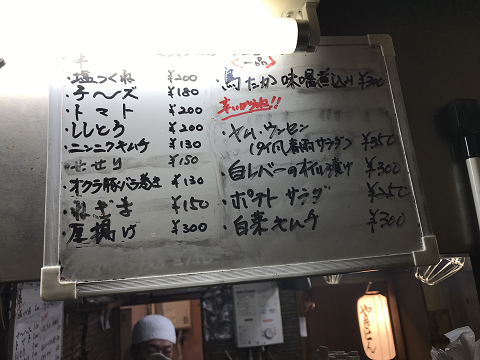 ・塩つくね ¥200
・チーズ ¥180
・トマト ¥200
・ししとう ¥200
・ニンニクキムチ ¥130
・せせり ¥150
・オクラ豚バラ巻き ¥130
・ねぎま ¥150
・厚揚げ ¥300
一品
味噌煮込み ¥300
辛いがうまい!!
・ヤム・ウンセン
(タイ風春雨サラダ) ¥350
・白レバーのオイル漬け ¥300
・ポテトサラダ ¥250
・白菜キムチ ¥300